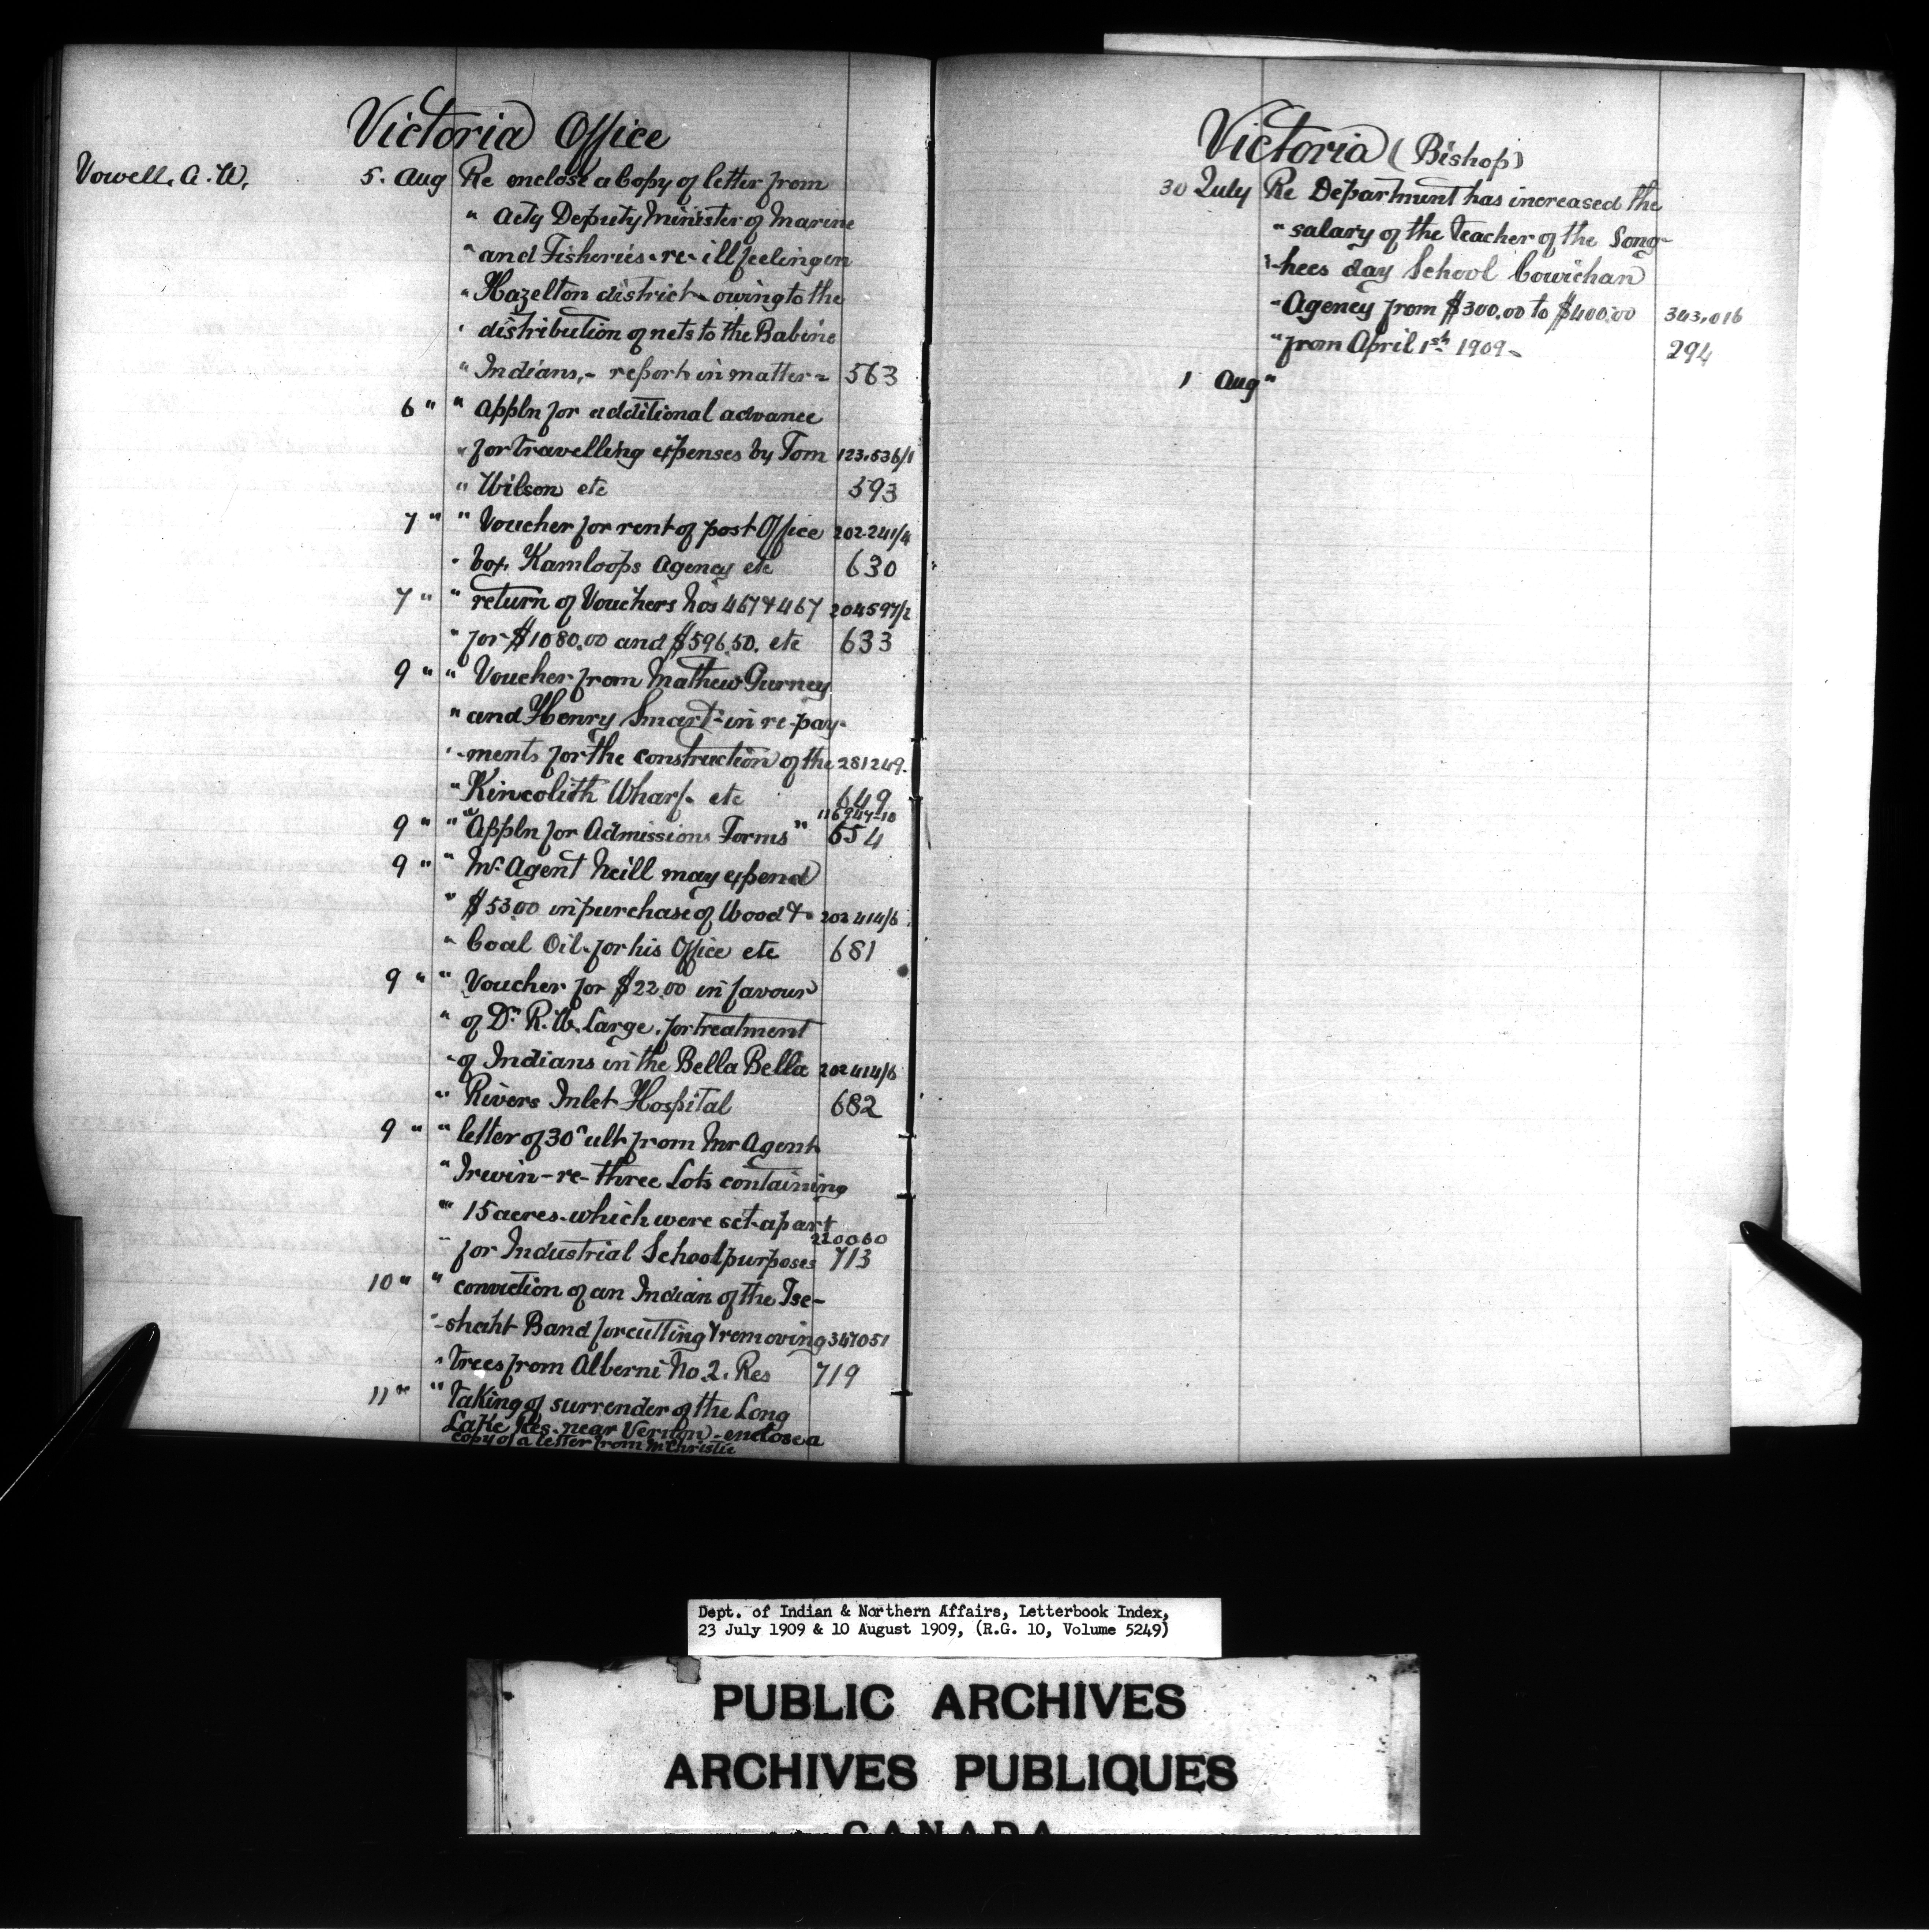 Victoria Office
Vowell. A. W. 5. Aug Re enclose a Copy of letter from
" Actg Deputy Minister of Marine
" and Fisheries - re - ill feeling in
" Hazelton district - owing to the
" distribution of nets to the Babine
" Indians, - report in matter - 563
6 " " Appln for additional advance
" for travelling expenses by Tom 123.536/1
" Wilson etc 593
7 " " Voucher for rent of post Office 202.241/4
" box. Kamloops Agency etc 630
7 " " return of Vouchers Nos 467 & 467 204597/2
" for $1080.00 and $596.50. etc 633
9 " " Voucher from Mathew Gurney
" and Henry Smart - in re - pay-
" ments for the construction of the 281249.
" Kincolith Wharf. etc 649
116947-10
9 " " "Appln for Admissions Forms" 654
9 " " Mr. Agent Neill may expend
" $53.00 in purchase of Wood & 202414/6
" Coal Oil - for his Office etc 681
9 " " Voucher for $22.00 in favour
" of Dr. R. W. Large. for treatment
" of Indians in the Bella Bella 202414/6
" Rivers Inlet Hospital 682
9 " " letter of 30" ult from Mr Agent
" Irwin - re - three Lots containing
" 15 acres - which were set apart
220060
" for Industrial School purposes 713
10 " " conviction of an Indian of the Tse-
" -shaht Band for cutting & removing 347051
" trees from Alberni No. 2. Res 719
11 " " Taking of surrender of the Long
Lake Res. near Vernon - enclose a
copy of a letter from Mr Christie
Victoria (Bishop)
30 July Re Department has increased the
" salary of the Teacher of the Song-
" -hees day School Cowichan
" Agency from $300.00 to $400.00 343,016
" from April 1st 1909 - 294
1 Aug "
Dept. of Indian & Northern Affairs, Letterbook Index,
23 July 1909 & 10 August 1909, (R.G. 10, Volume 5249)
PUBLIC ARCHIVES
ARCHIVES PUBLIQUES
CANADA